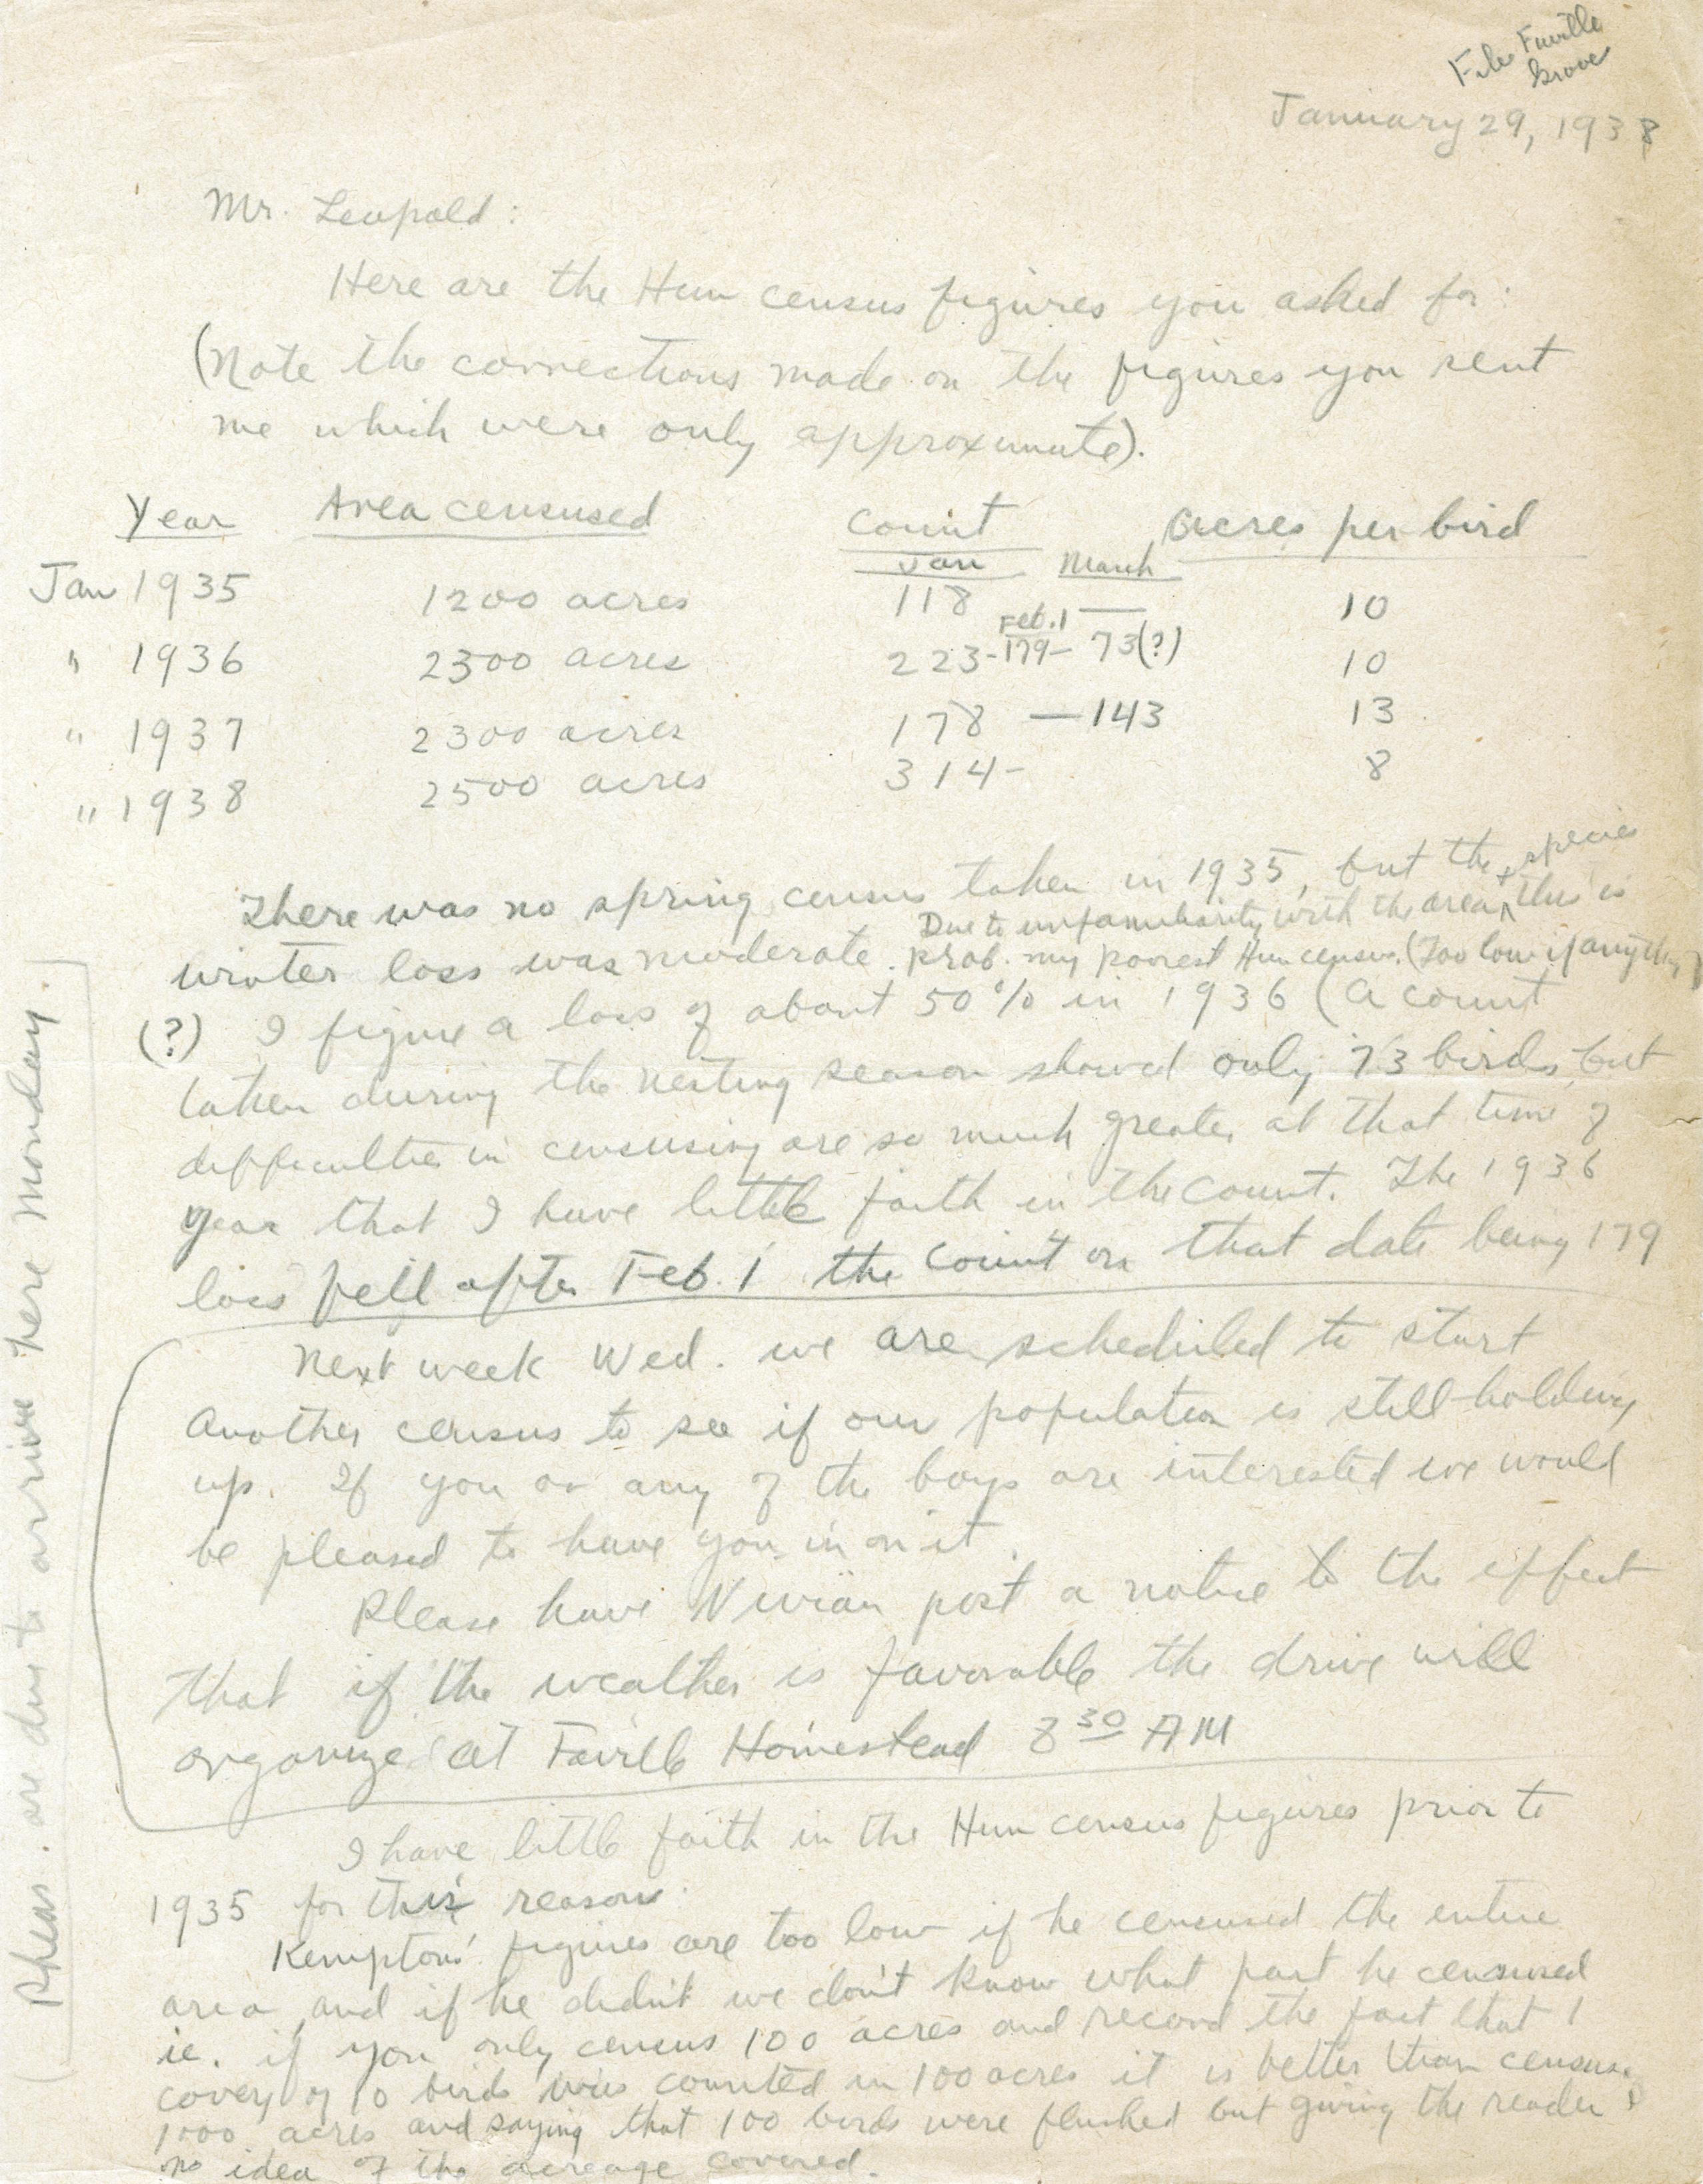 File Faville
Grove
January 29, 1938
Mr. Leopold:
Here are the Hun census figures you asked for:
(Note the corrections made on the figures you sent
me which were only approximate).
Year Area censused Count Acres per bird
Jan March
Jan 1935 1200 acres 118 — 10
Feb. 1
" 1936 2300 acres 223-179- 73(?) 10
" 1937 2300 acres 178 — 143 13
" 1938 2500 acres 314- 8
There was no spring census taken in 1935, but the species
Due to unfamiliarity with the area, this is
winter loss was moderate. prob. my poorest Hun census. (Too low if anything)
(?) I figure a loss of about 50% in 1936 (a count
taken during the nesting season showed only 73 birds, but
difficulties in censusing are so much greater at that time of
year that I have little faith in the count. The 1936
loss fell after Feb. 1 the count on that date being 179
Next week Wed. we are scheduled to start
another census to see if our population is still holding
up. If you or any of the boys are interested we would
be pleased to have you in on it.
Please have Vivian post a notice to the effect
that if the weather is favorable the drive will
organize at Faville Homestead 8 30 AM
I have little faith in the Hun census figures prior to
1935 for this reason:
Kempton's figures are too low if he censused the entire
area, and if he didn't we don't know what part he censused
ie. if you only census 100 acres and record the fact that 1
covey of 10 birds was counted in 100 acres it is better than census
1000 acres and saying that 100 birds were flushed but giving the reader
no idea of the acreage covered.
(Pheas. are due to arrive here Monday.